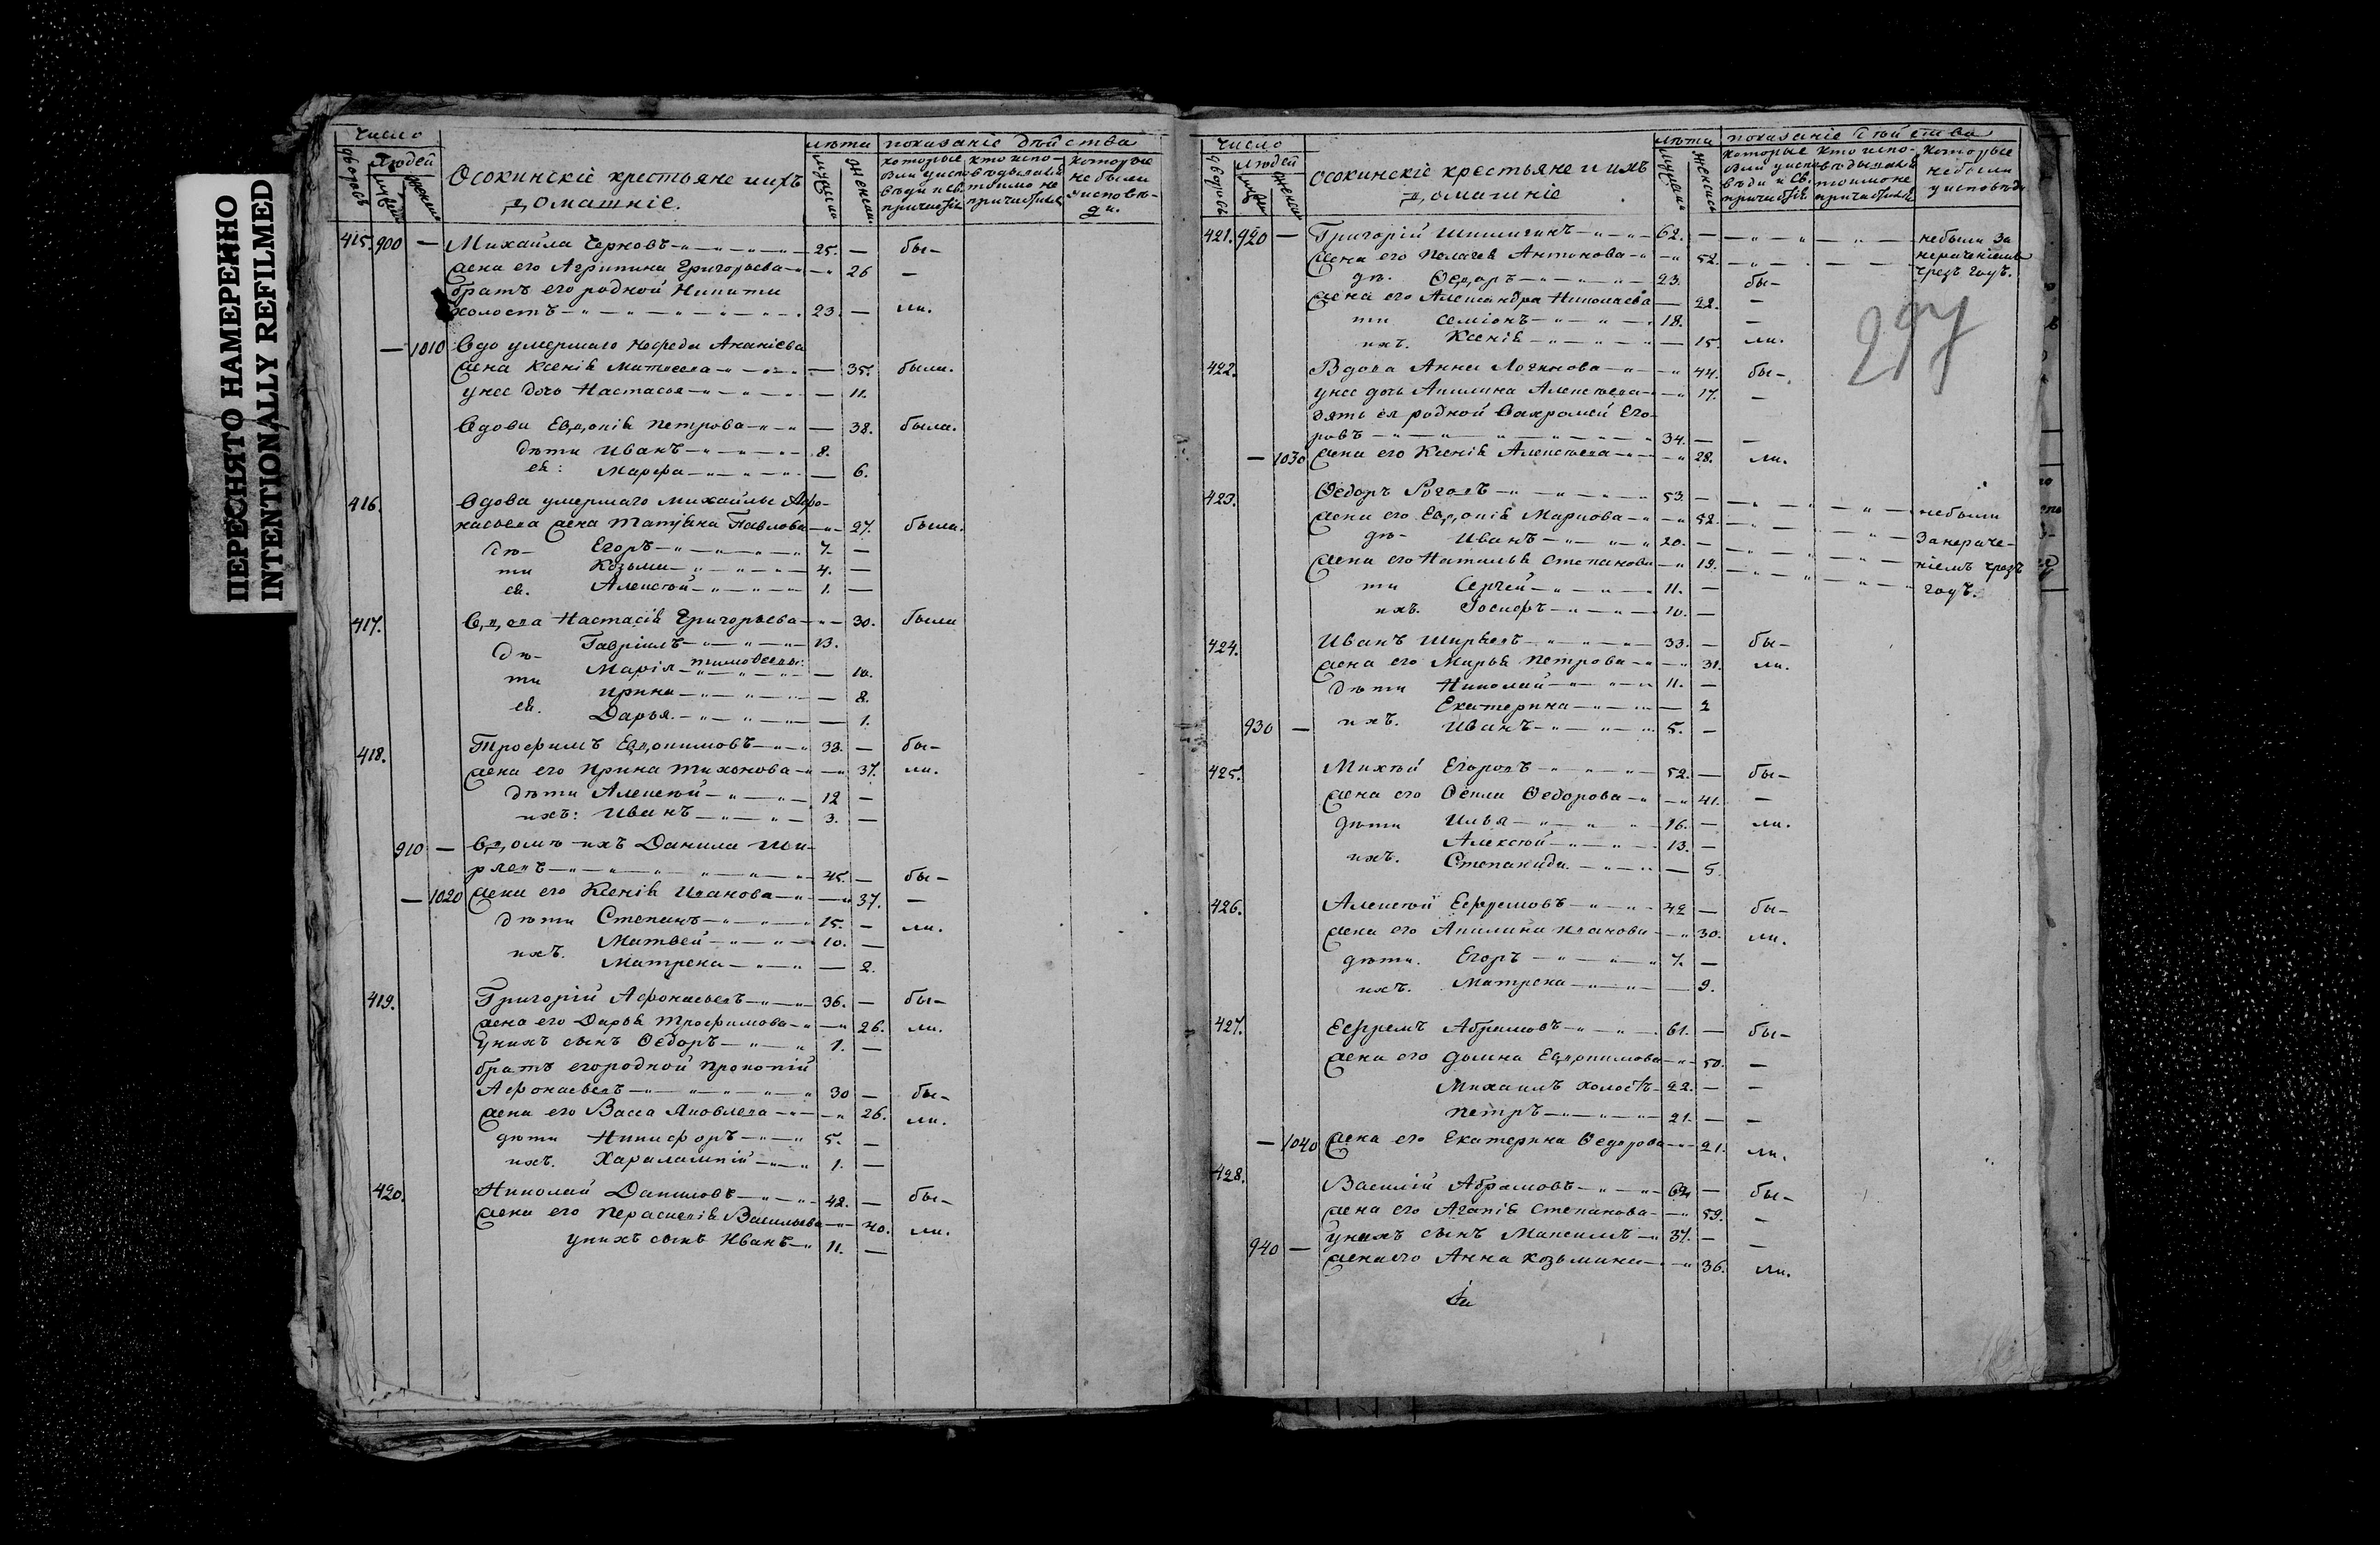 ПЕРЕСНЯТО НАМЕРЕННО
INTENTIONALLY REFILMED
число
дворовъ
людей
мужеска
женска
Осокинскіе крестьяне и ихъ
домашніе.
лѣта
мужеска
женска
показаніе дѣйства
которые
были у испо
вѣди и св.
причастія
кто испо-
вѣдывался
токмо не
причастился
которые
не были
у исповѣ-
ди.
415. 900 — Михайла Черновъ 25. — бы-
жена его Агрипина Григорьева 26 —
братъ его родной Никита
холостъ 23. — ли.
— 1010 вдо умершаго Нефеда Ананіева
жена Ксенія Матвеева — 35. были.
у нее дочь Настасья — 11.
вдова Евдокія Петрова — 38. была.
дѣти Иванъ 8.
ея: Марфа — 6.
416. вдова умершаго Михайлы Афо-
насьева жена Татіяна Павлова 27. была.
дѣ- Егоръ 7. —
ти Козьма 4. —
ея. Алексѣй 1. —
417. вдова Настасія Григорьева 30. были
дѣ- Гавріилъ 13.
Марія Тимовеевы: — 10.
ти Ирина — 8.
ея. Дарья — 1.
418. Трофимъ Евдокимовъ 38. — бы-
жена его Ирина Тихонова 37. ли.
дѣти Алексѣй 12 —
ихъ: Иванъ 3. —
910 — в домѣ ихъ Данила Ши-
ряевъ 45. — бы-
— 1020 жена его Ксенія Иванова 37. —
дѣти Степанъ 15. — ли.
Матвей 10. —
ихъ. Матрена — 2.
419. Григорій Афонасьевъ 36. — бы-
жена его Дарья Трофимова 26. ли.
у нихъ сынъ Ѳедоръ 1. —
братъ его родной Прокопій
Афонасьевъ 30 — бы-
жена его Васса Яковлева 26. ли.
дѣти Никифоръ 5. —
ихъ. Харалампій 1. —
420. Николай Даниловъ 42. — бы-
жена его Параскевія Васильева 40. ли.
у нихъ сынъ Иванъ 11. —
число
дворовъ
людей
мужеска
женска
Осокинскіе крестьяне и ихъ
домашніе
лѣта
мужеска
женска
показаніе дѣйства
которые
были у испо
вѣди и св.
причастія
кто испо-
вѣдывался
токмо не
причастился
которые
не были
у исповѣди
421. 920 — Григорій Шишигинъ 62. — не были за
жена его Пелагея Антонова 52. нераченіемъ
дѣ. Ѳедоръ 23. бы- чрезъ годъ.
жена его Александра Николаева — 22. —
ти Семіонъ 18. —
ихъ. Ксенія — 15. ли.
297
422. Вдова Анна Логинова 44. бы-
у нее дочь Акилина Алексѣева 17. —
зять ея родной Вахромей Его-
ровъ 34. — —
— 1030 жена его Ксенія Алексѣева 28. ли.
423. Ѳедоръ Роговъ 53. — не были
жена его Евдокія Маркова 52.
дѣ- Иванъ 20. — за нераче-
жена его Наталья Степанова 19. ніемъ чрезъ
ти Сергей 11. — годъ.
ихъ. Іосифъ 10. —
424. Иванъ Ширяевъ 33. — бы-
жена его Марья Петрова 31. ли.
дѣти Николай 11. —
Екатерина — 2
930 — ихъ. Иванъ 5. —
425. Михѣй Егоровъ 52. — бы-
жена его Ѳекла Ѳедорова 41. —
дѣти Илья 16. — ли.
Алексѣй 13. —
ихъ. Степанида — 5.
426. Алексѣй Ефремовъ 42 — бы-
жена его Акилина Иванова 30. ли.
дѣти. Егоръ 7. —
ихъ. Матрена — 9.
427. Ефремъ Абрамовъ 61. — бы-
жена его Домна Евдокимова 50. —
Михаилъ холостъ 22. — —
Петръ 21. — —
— 1040 жена его Екатерина Ѳедорова 21. ли.
428. Василій Абрамовъ — бы-
жена его Агапія Степанова 59. —
у нихъ сынъ Максимъ 37. — —
940 — жена его Анна Козьмина 36. ли.